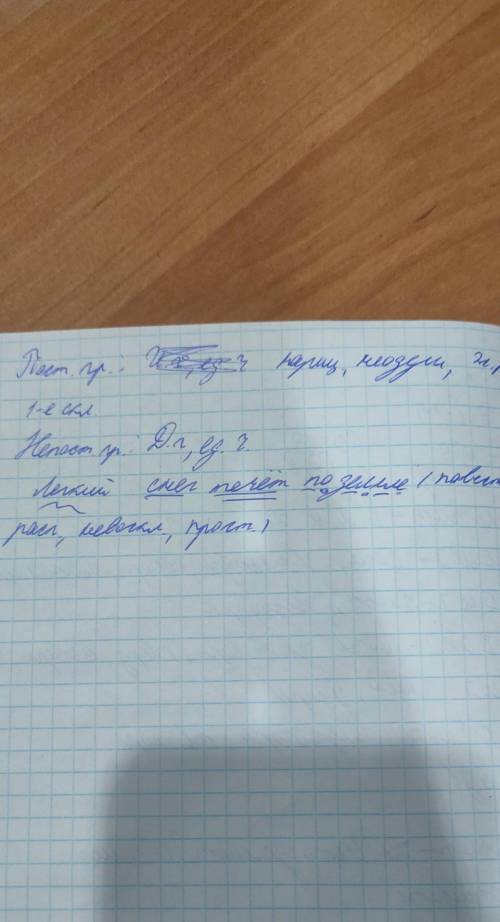 Пост. гр.: нариц, неодуш, ж,
1-е скл.
Непост. гр.: Д.п, ед. ч.
Легкий снег течёт по земле (повест
расп, невоскл., прост.)